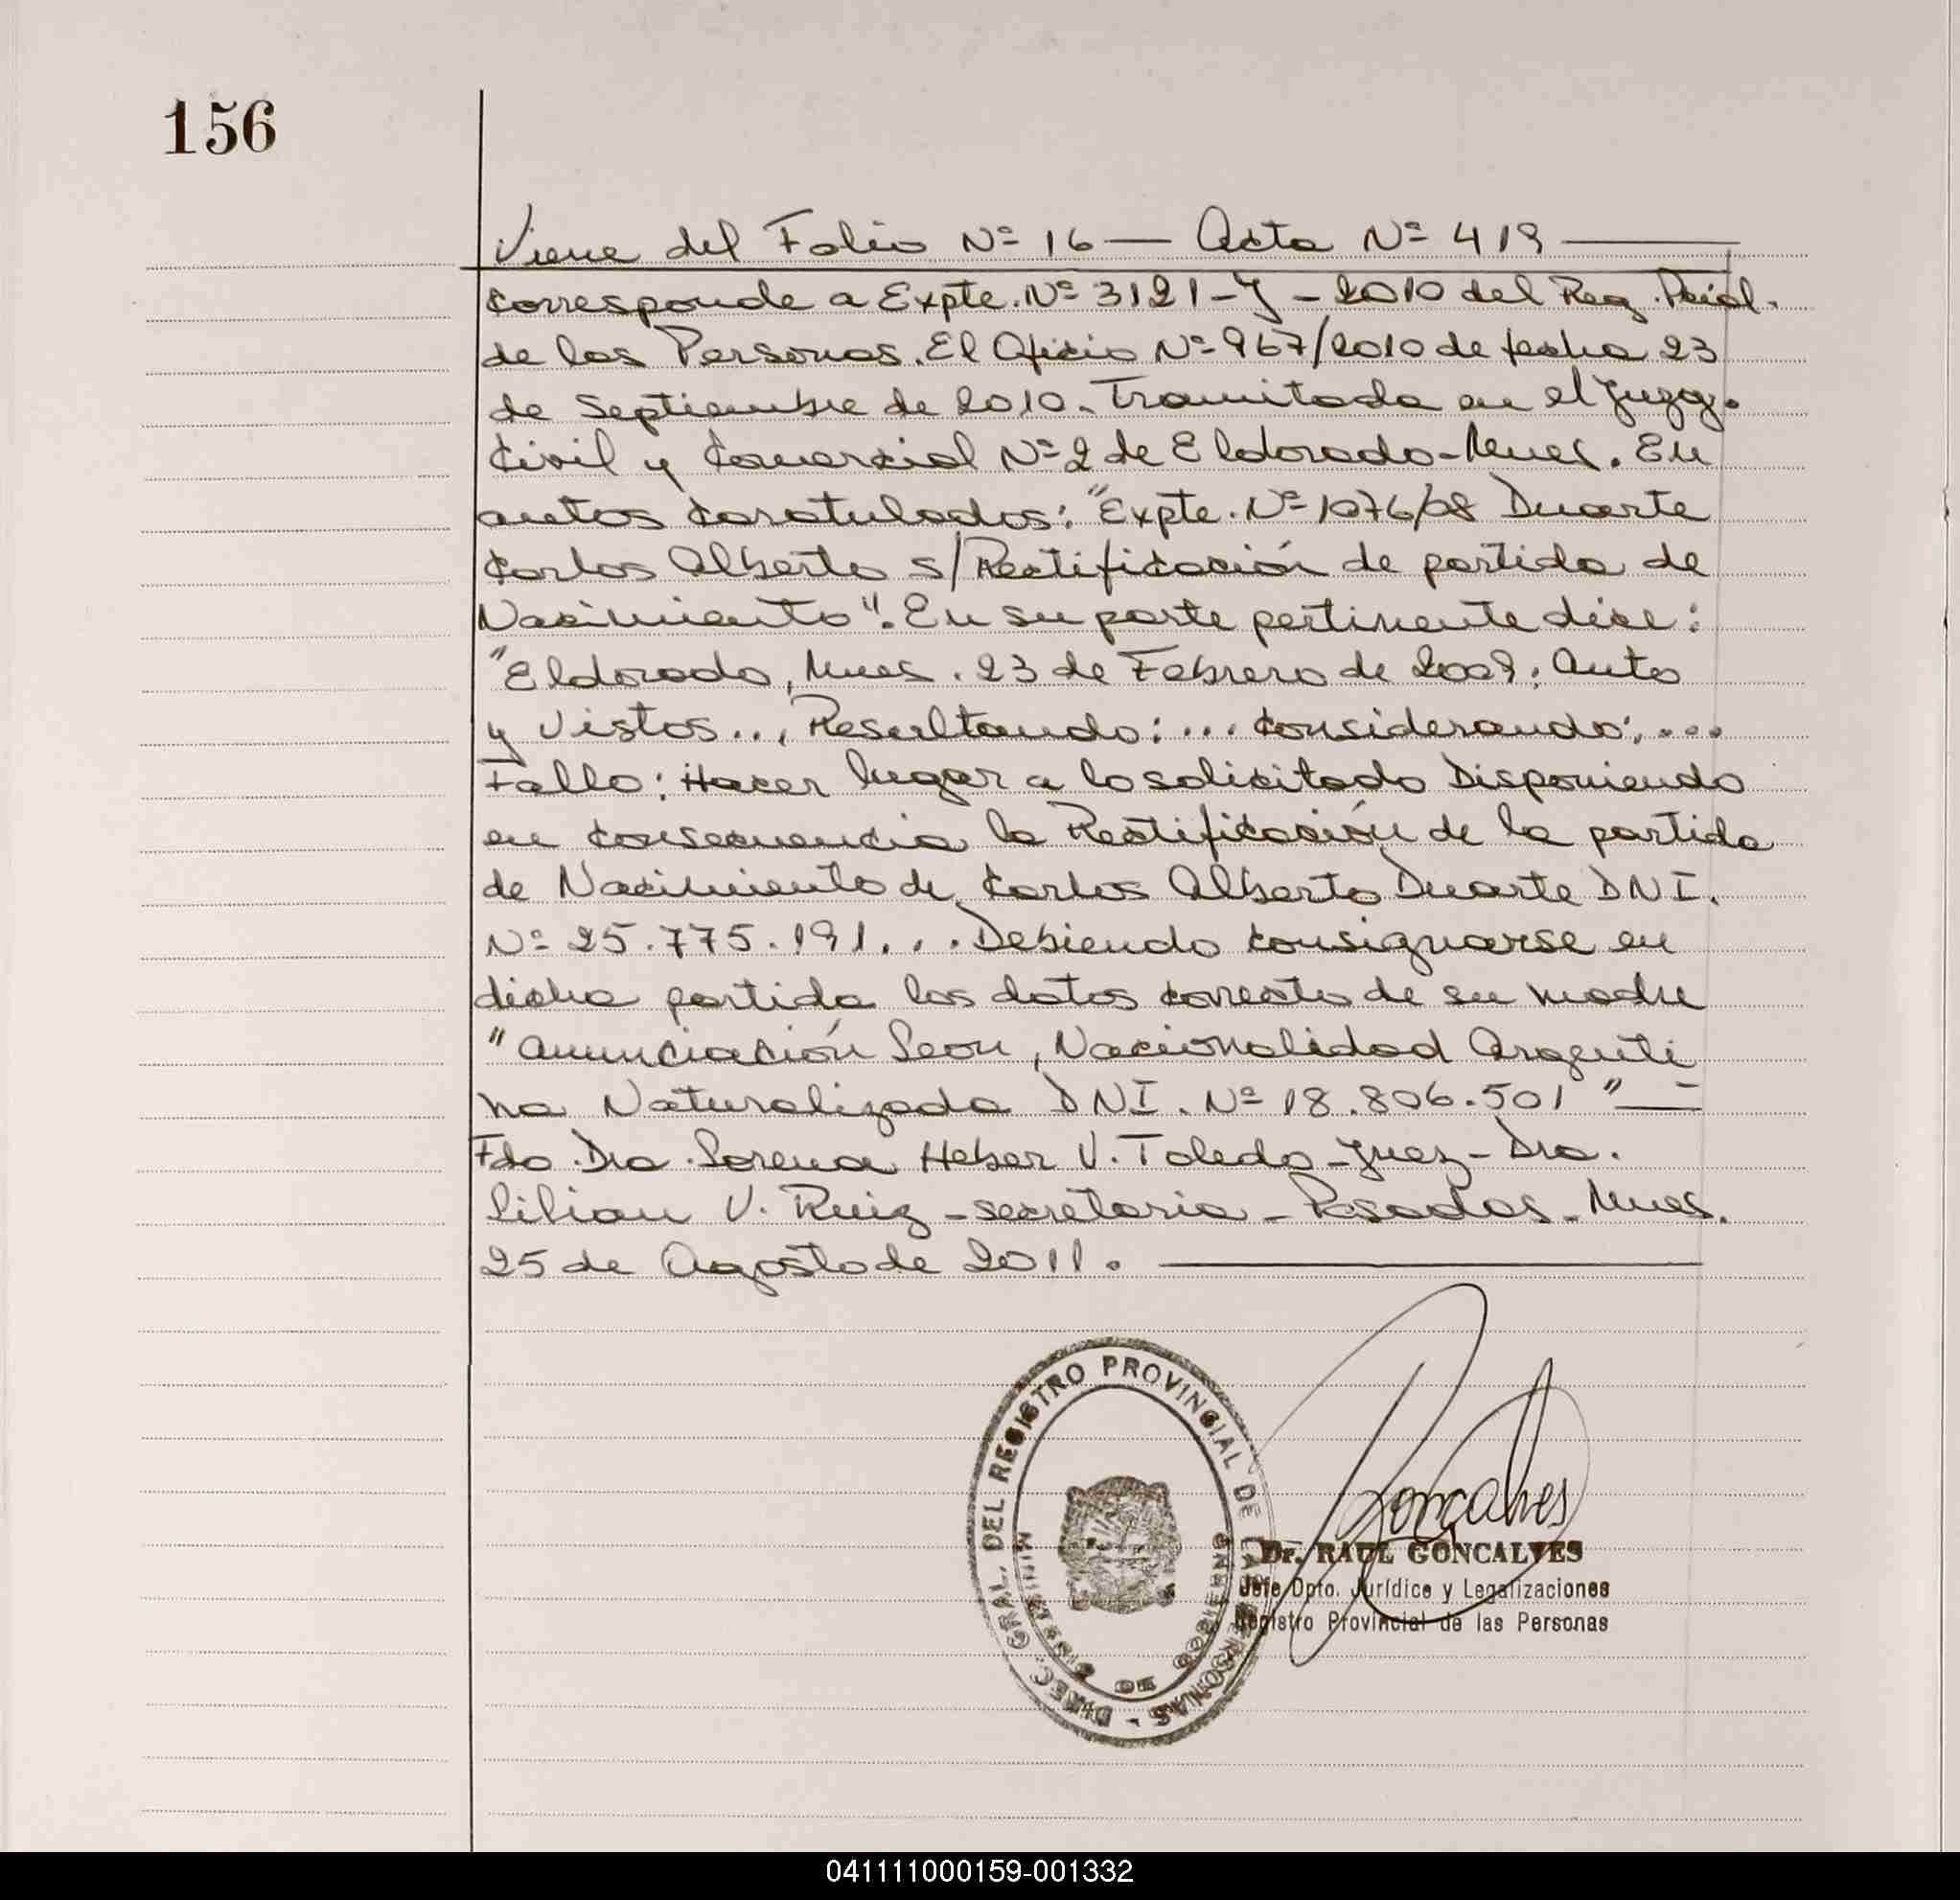 156
Viene del Folio Nº 16 — Acta Nº 419 —
Corresponde a Expte. Nº 3121-Y-2010 del Reg. Pcial.
de las Personas. El Oficio Nº 967/2010 de fecha 23
de Septiembre de 2010. Tramitada en el Juzg.
Civil y Comercial Nº 2 de Eldorado-Mnes. En
autos Caratulados: "Expte. Nº 1076/08 Duarte
Carlos Alberto s/Rectificación de partida de
Nacimiento". En su parte pertinente dice:
"Eldorado, Mnes. 23 de Febrero de 2009: Auto
y Vistos... Resultando: ... Considerando: ...
Fallo: Hacer lugar a lo solicitado Disponiendo
en consecuencia la Rectificación de la partida
de Nacimiento de Carlos Alberto Duarte DNI.
Nº 25.775.191... Debiendo consignarse en
dicha partida los datos correctos de su madre
"Anunciación Leon, Nacionalidad Argenti
na Naturalizada DNI. Nº 18.806.501" —
Fdo. Dra. Lorena Heber V. Toledo-Juez-Dra.
Lilian V. Ruiz-secretaria-Posadas-Mnes.
25 de Agosto de 2011. —
DIREC. GRAL. DEL REGISTRO PROVINCIAL DE LAS PERSONAS -
MINISTERIO DE GOBIERNO
Goncalves
Dr. RAUL GONCALVES
Jefe Dpto. Jurídico y Legalizaciones
Registro Provincial de las Personas
041111000159-001332